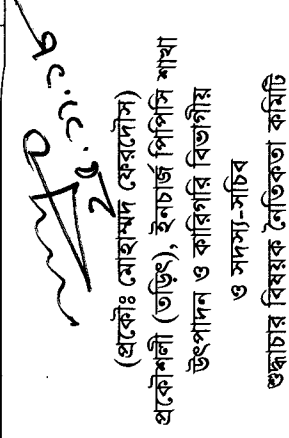 (প্রকৌঃ মোহাম্মদ ফেরদৌস)
প্রকৌশলী (তড়িৎ), ইনচার্জ পিপিসি শাখা
উৎপাদন ও কারিগরি বিভাগীয়
ও সদস্য-সচিব
শুদ্ধাচার বিষয়ক নৈতিকতা কমিটি